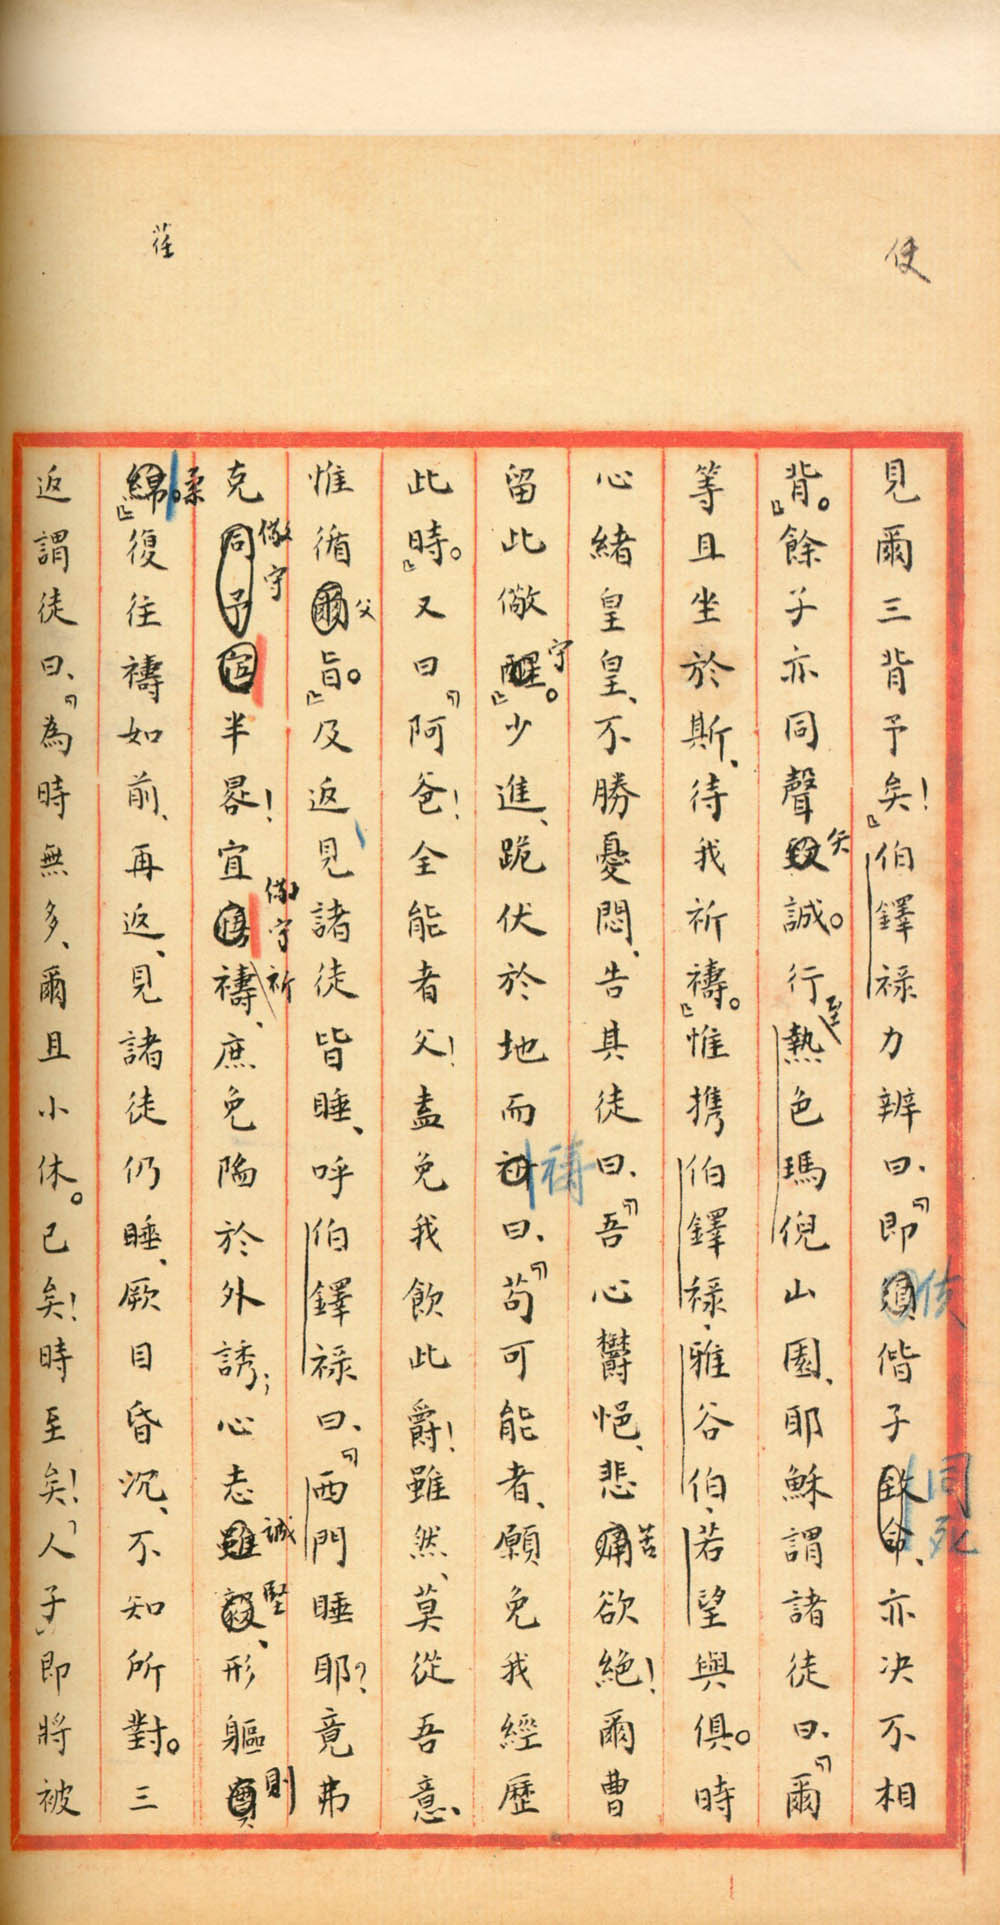 使
荏
見爾三背予矣！』伯鐸祿力辨曰、『即使偕子同死、亦决不相
背。』餘子亦同聲矢誠。行至熱色瑪倪山園、耶穌謂諸徒曰、『爾
等且坐於斯、待我祈禱。』惟攜伯鐸祿、雅谷伯、若望與俱。時
心緒皇皇、不勝憂悶、告其徒曰、『吾心鬱悒、悲苦欲絕！爾曹
留此儆守。』少進、跪伏於地而禱曰、『苟可能者、願免我經歷
此時。』又曰『阿爸！全能者父！盍免我飲此爵！雖然、莫從吾意、
惟循父旨。』及返、見諸徒皆睡、呼伯鐸祿曰、『西門睡耶？竟弗
克儆守半晷！宜儆守祈禱、庶免陷於外誘；心志誠堅、形軀則
柔。』復往禱如前、再返、見諸徒仍睡、厥目昏沉、不知所對。三
返謂徒曰、『為時無多、爾且小休。已矣！時至矣！「人子」即將被